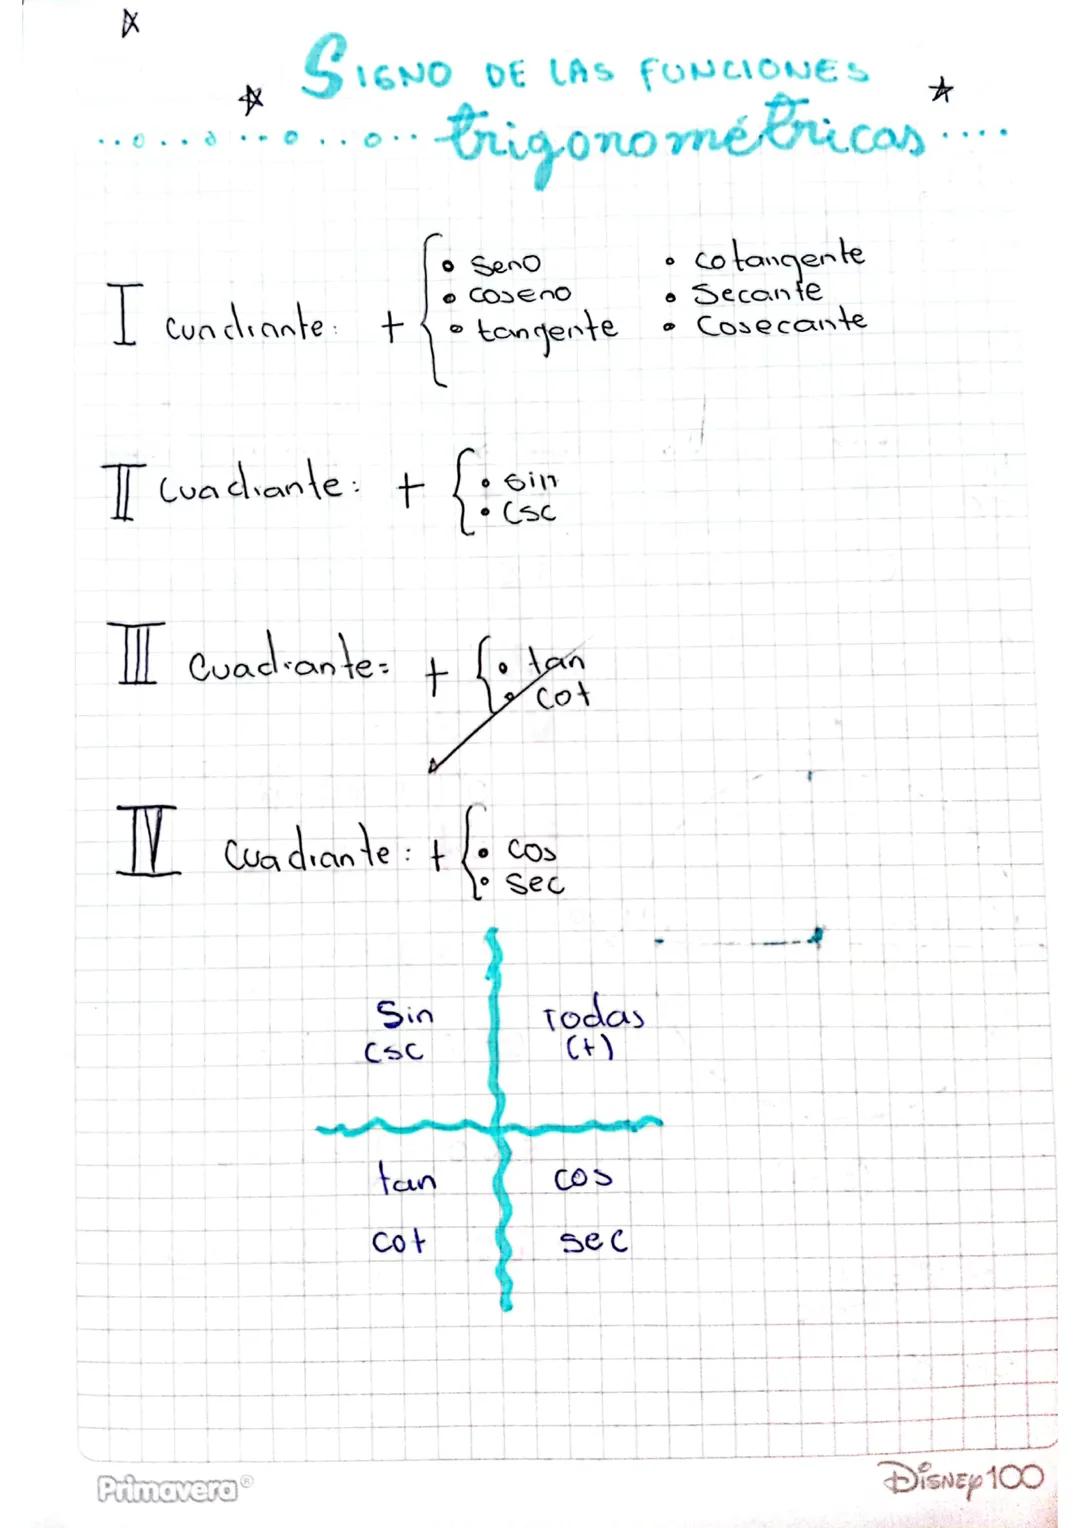 SIGNO DE LAS FUNCIONES
trigonométricas
I cuadiante: + { • seno • cotangente
• coseno • Secante
• tangente • Cosecante
II Cuadiante: + { • sin
• csc
III Cuadiante: + { • tan
• cot
IV Cuadiante: + { • cos
• sec
Sin Todas
csc (+)
tan cos
cot sec
Primavera® Disney 100